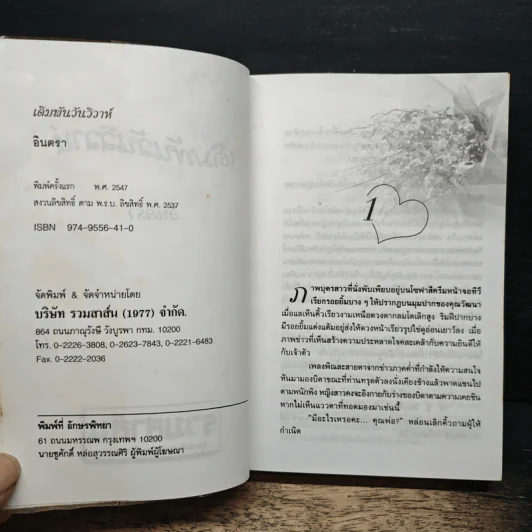 เดิมพันวันวิวาห์
อินตรา
พิมพ์ครั้งแรก พ.ศ. 2547
สงวนลิขสิทธิ์ ตาม พ.ร.บ. ลิขสิทธิ์ พ.ศ. 2537
ISBN 974-9556-41-0
จัดพิมพ์ & จัดจำหน่ายโดย
บริษัท รวมสาส์น (1977) จำกัด.
864 ถนนภาณุรังษี วังบูรพา กทม. 10200
โทร. 0-2226-3808, 0-2623-7843, 0-2221-6483
Fax. 0-2222-2036
พิมพ์ที่ อักษรพิทยา
61 ถนนมหรรณพ กรุงเทพฯ 10200
นายชูศักดิ์ หล่อสุวรรณศิริ ผู้พิมพ์ผู้โฆษณา
1
ภาพบุตรสาวที่นั่งพับเพียบอยู่บนโซฟาสีครีมหน้าจอทีวี
เรียกรอยยิ้มบาง ๆ ให้ปรากฏบนมุมปากของคุณวัฒนา
เมื่อแลเห็นคิ้วเรียวงามเหนือดวงตากลมโตเลิกสูง ริมฝีปากบาง
มีรอยยิ้มแต่งแต้มอยู่ส่งให้ดวงหน้าเรียวรูปไข่ดูอ่อนเยาว์ลง เมื่อ
ภาพข่าวที่เห็นสร้างความประหลาดใจคละเคล้ากับความยินดีให้
กับเจ้าตัว
เพลงพิณละสายตาจากข่าวภาคค่ำที่กำลังให้ความสนใจ
หันมามองบิดาขณะที่ท่านทรุดตัวลงนั่งเคียงข้างแล้วพาดแขนไป
ตามพนักพิง หญิงสาวคงจะอิงกายกับร่างของบิดาตามความเคยชิน
หากไม่เห็นแววตาที่ทอดมองมาเช่นนี้
"มีอะไรเหรอคะ... คุณพ่อ?" หล่อนเลิกคิ้วถามผู้ให้
กำเนิด